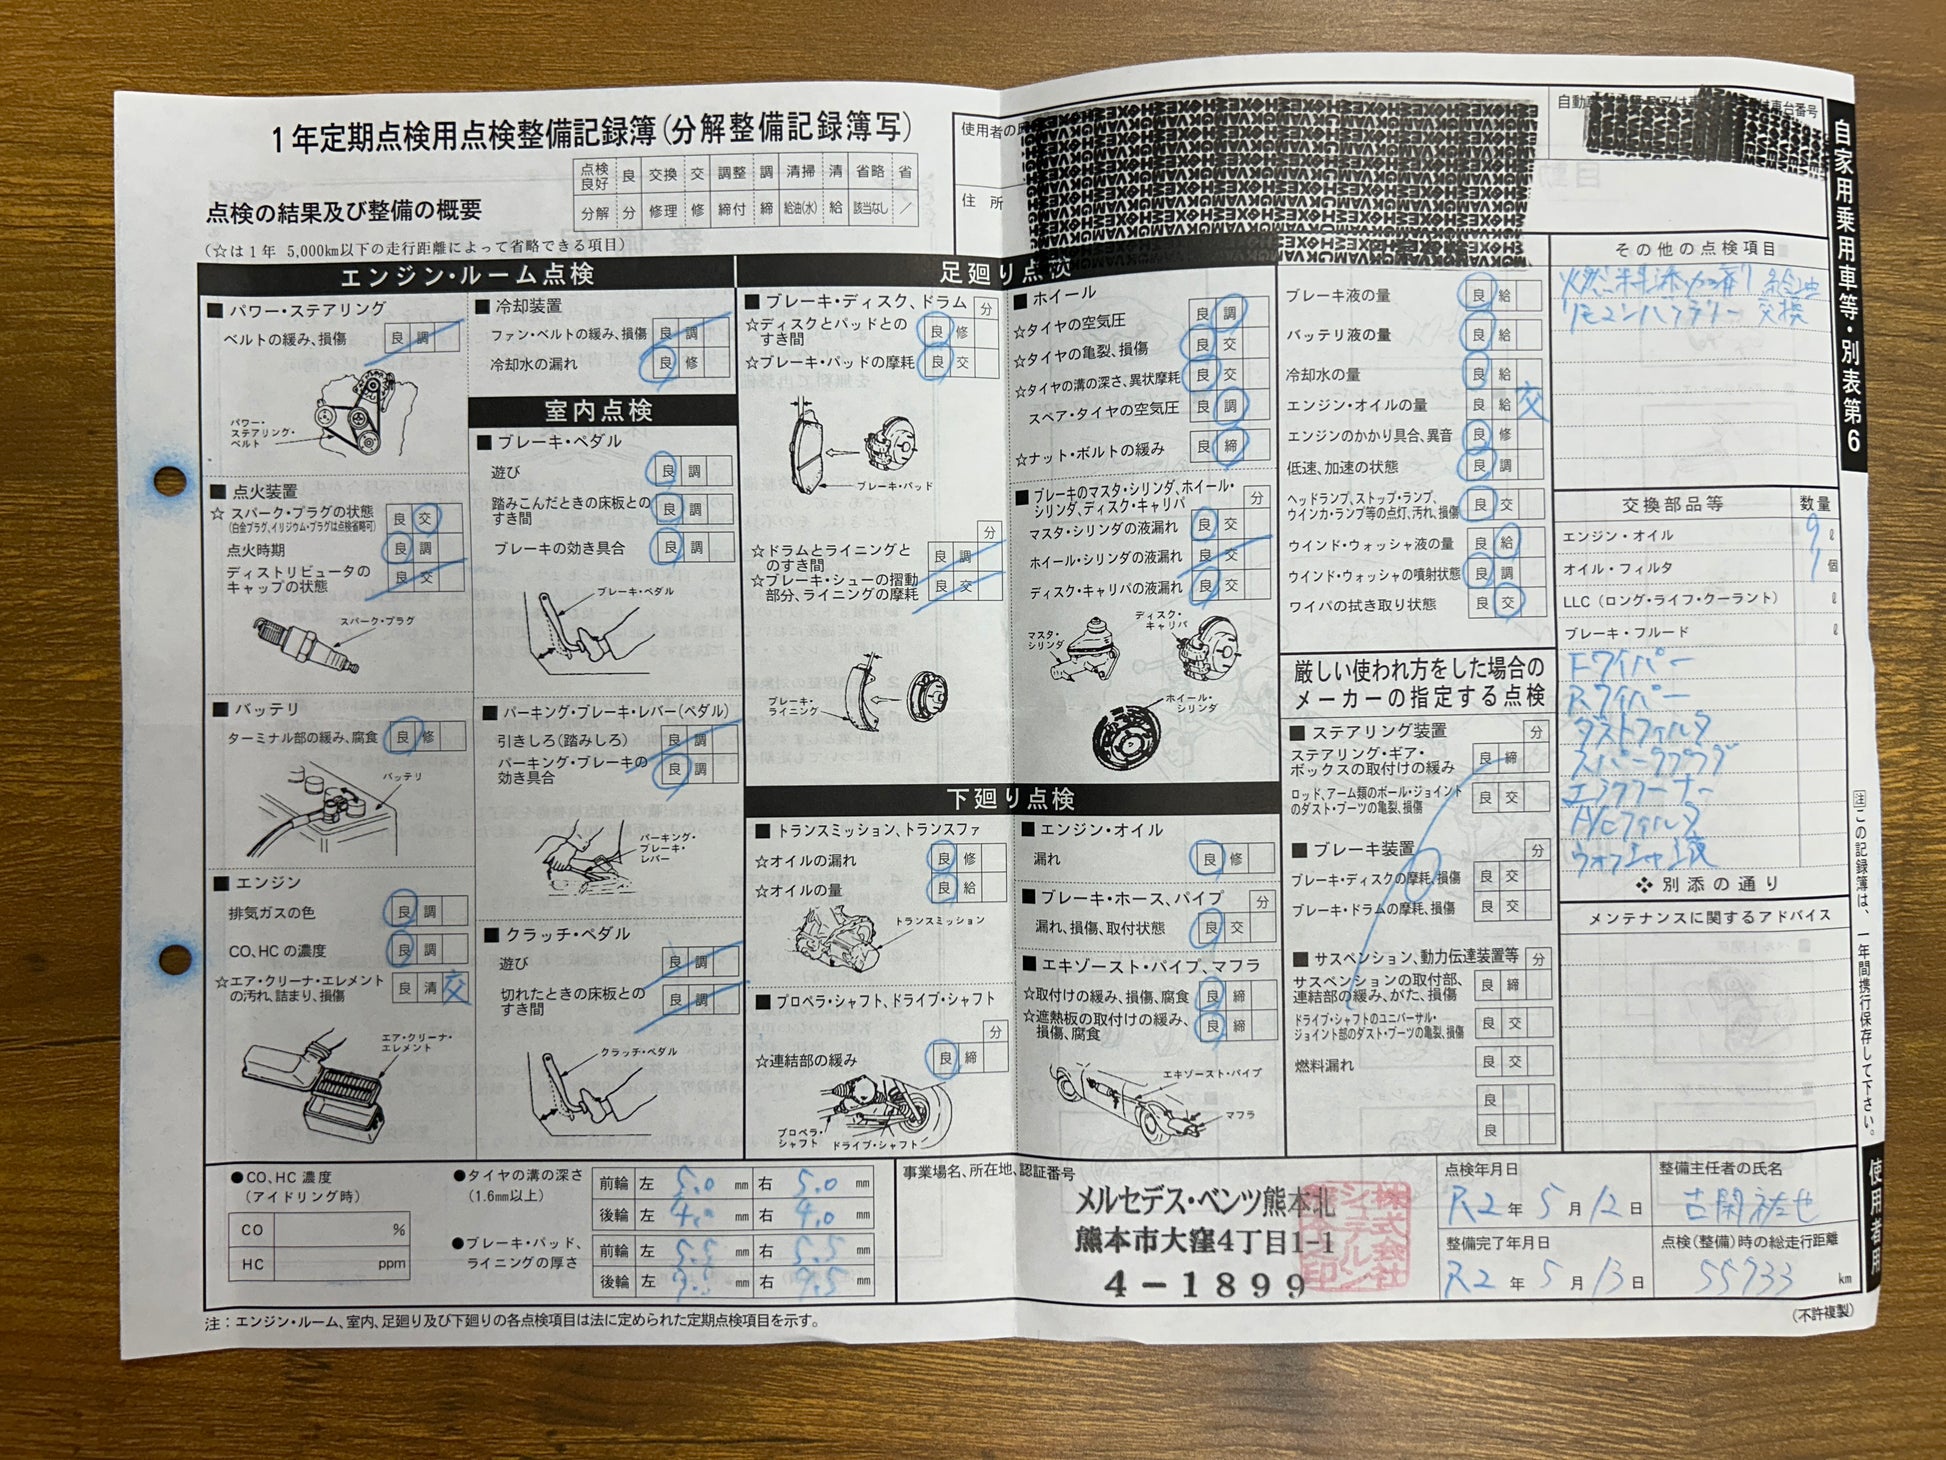 1年定期点検用点検整備記録簿(分解整備記録簿写)
点検の結果及び整備の概要
(☆は1年 5,000km以下の走行距離によって省略できる項目)
点検良好 良 交換 交 調整 調 清掃 清 省略 省
分解 分 修理 修 締付 締 給油(水) 給 該当なし ／
住 所
自家用乗用車等・別表第6
エンジン・ルーム点検
■ パワー・ステアリング
ベルトの緩み、損傷 良 調
パワー・ステアリング・ベルト
■ 点火装置
☆ スパーク・プラグの状態 良 交
(白金プラグ、イリジウム・プラグは点検省略可)
点火時期 良 調
ディストリビュータのキャップの状態 良 交
スパーク・プラグ
■ バッテリ
ターミナル部の緩み、腐食 良 修
バッテリ
■ エンジン
排気ガスの色 良 調
CO、HCの濃度 良 調
☆エア・クリーナ・エレメントの汚れ、詰まり、損傷 良 清 交
エア・クリーナ・エレメント
■ 冷却装置
ファン・ベルトの緩み、損傷 良 調
冷却水の漏れ 良 修
室内点検
■ ブレーキ・ペダル
遊び 良 調
踏みこんだときの床板とのすき間 良 調
ブレーキの効き具合 良 調
ブレーキ・ペダル
■ パーキング・ブレーキ・レバー(ペダル)
引きしろ(踏みしろ) 良 調
パーキング・ブレーキの効き具合 良 調
パーキング・ブレーキ・レバー
■ クラッチ・ペダル
遊び 良 調
切れたときの床板とのすき間 良 調
クラッチ・ペダル
足廻り点検
■ ブレーキ・ディスク、ドラム 分
☆ディスクとパッドとのすき間 良 修
☆ブレーキ・パッドの摩耗 良 交
ブレーキ・パッド
分
☆ドラムとライニングとのすき間 良 調
☆ブレーキ・シューの摺動部分、ライニングの摩耗 良 交
ブレーキ・ライニング
■ ホイール
☆タイヤの空気圧 良 調
☆タイヤの亀裂、損傷 良 交
☆タイヤの溝の深さ、異状摩耗 良 交
スペア・タイヤの空気圧 良 調
☆ナット・ボルトの緩み 良 締
■ ブレーキのマスタ・シリンダ、ホイール・シリンダ、ディスク・キャリパ 分
マスタ・シリンダの液漏れ 良 交
ホイール・シリンダの液漏れ 良 交
ディスク・キャリパの液漏れ 良 交
マスタ・シリンダ
ディスク・キャリパ
ホイール・シリンダ
下廻り点検
■ トランスミッション、トランスファ
☆オイルの漏れ 良 修
☆オイルの量 良 給
トランスミッション
■ プロペラ・シャフト、ドライブ・シャフト
分
☆連結部の緩み 良 締
プロペラ・シャフト
ドライブ・シャフト
■ エンジン・オイル
漏れ 良 修
■ ブレーキ・ホース、パイプ 分
漏れ、損傷、取付状態 良 交
■ エキゾースト・パイプ、マフラ
☆取付けの緩み、損傷、腐食 良 締
☆遮熱板の取付けの緩み、損傷、腐食 良 締
エキゾースト・パイプ
マフラ
ブレーキ液の量 良 給
バッテリ液の量 良 給
冷却水の量 良 給
エンジン・オイルの量 良 給 交
エンジンのかかり具合、異音 良 修
低速、加速の状態 良 調
ヘッドランプ、ストップ・ランプ、ウインカ・ランプ等の点灯、汚れ、損傷 良 交
ウインド・ウォッシャ液の量 良 給
ウインド・ウォッシャの噴射状態 良 調
ワイパの拭き取り状態 良 交
厳しい使われ方をした場合の
メーカーの指定する点検
■ ステアリング装置 分
ステアリング・ギア・ボックスの取付けの緩み 良 締
ロッド、アーム類のボール・ジョイントのダスト・ブーツの亀裂、損傷 良 交
■ ブレーキ装置 分
ブレーキ・ディスクの摩耗、損傷 良 交
ブレーキ・ドラムの摩耗、損傷 良 交
■ サスペンション、動力伝達装置等 分
サスペンションの取付部、連結部の緩み、がた、損傷 良 締
ドライブ・シャフトのユニバーサル・ジョイント部のダスト・ブーツの亀裂、損傷 良 交
燃料漏れ 良 交
良
良
その他の点検項目
燃料添加剤 給油
リモコンバッテリー 交換
交換部品等 数量
エンジン・オイル 9 ℓ
オイル・フィルタ 1 個
LLC (ロング・ライフ・クーラント) ℓ
ブレーキ・フルード ℓ
Fワイパー
Rワイパー
ダストフィルタ
スパークプラグ
エアクリーナー
A/Cフィルタ
ウォッシャー液
❖ 別添の通り
メンテナンスに関するアドバイス
注 この記録簿は、一年間携行保存して下さい。
使用者用
●CO、HC 濃度
(アイドリング時)
CO %
HC ppm
●タイヤの溝の深さ
(1.6mm以上)
前輪 左 5.0 mm 右 5.0 mm
後輪 左 4.0 mm 右 4.0 mm
●ブレーキ・パッド、ライニングの厚さ
前輪 左 5.5 mm 右 5.5 mm
後輪 左 9.5 mm 右 9.5 mm
事業場名、所在地、認証番号
メルセデス・ベンツ熊本北
熊本市大窪4丁目1-1
4-1899
点検年月日
R2 年 5 月 12 日
整備完了年月日
R2 年 5 月 13 日
整備主任者の氏名
古閑祐也
点検(整備)時の総走行距離
55933 km
注：エンジン・ルーム、室内、足廻り及び下廻りの各点検項目は法に定められた定期点検項目を示す。
(不許複製)